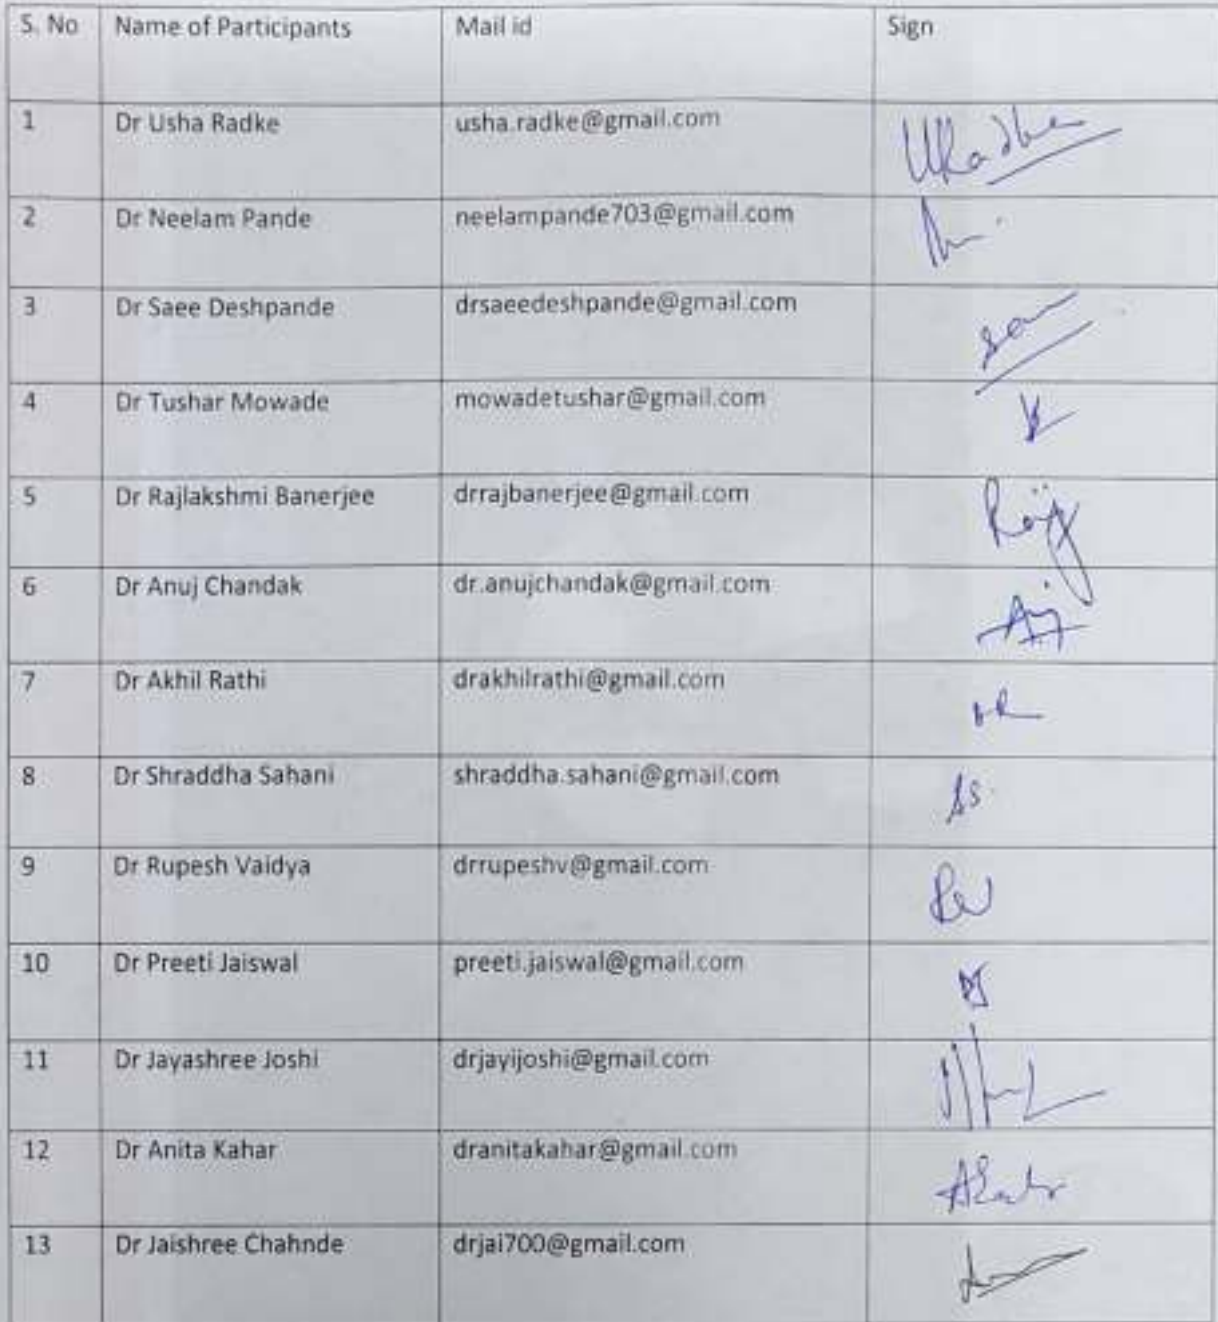 S. No Name of Participants Mail id Sign
1 Dr Usha Radke usha.radke@gmail.com
2 Dr Neelam Pande neelampande703@gmail.com
3 Dr Saee Deshpande drsaeedeshpande@gmail.com
4 Dr Tushar Mowade mowadetushar@gmail.com
5 Dr Rajlakshmi Banerjee drrajbanerjee@gmail.com
6 Dr Anuj Chandak dr.anujchandak@gmail.com
7 Dr Akhil Rathi drakhilrathi@gmail.com
8 Dr Shraddha Sahani shraddha.sahani@gmail.com
9 Dr Rupesh Vaidya drrupeshv@gmail.com
10 Dr Preeti Jaiswal preeti.jaiswal@gmail.com
11 Dr Jayashree Joshi drjayijoshi@gmail.com
12 Dr Anita Kahar dranitakahar@gmail.com
13 Dr Jaishree Chahnde drjai700@gmail.com